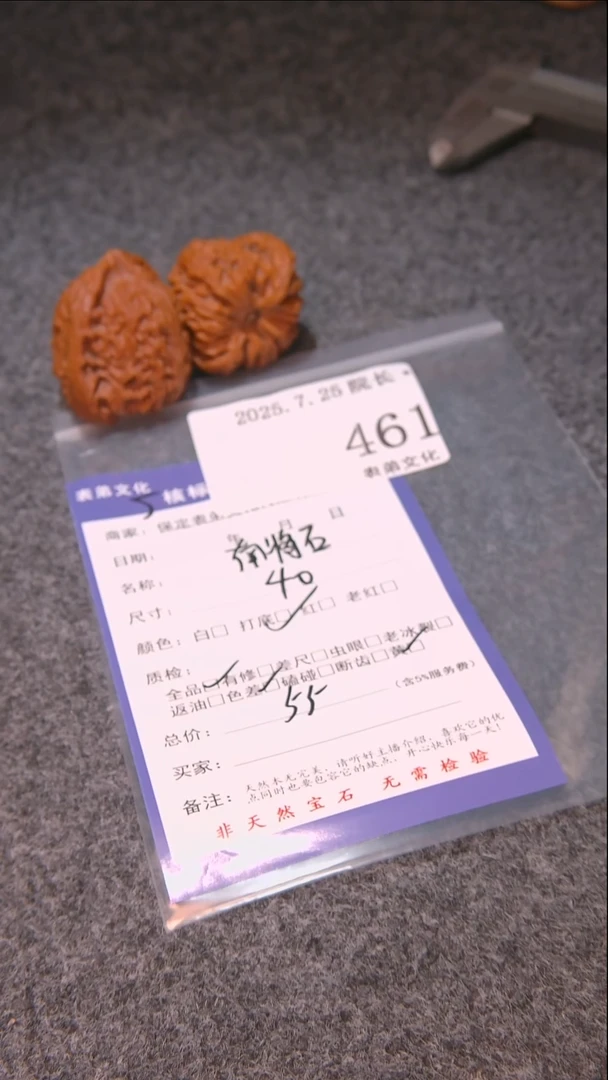 2025.7.25 院长
461
表弟文化
表弟文化
5 核标
商家：保定表
日期： 年 月 日
名称： 南将石
尺寸： 40
颜色：白□ 打底□ 红□ 老红□
质检：
全品□有修□差尺□虫眼□老冰裂□
返油□色差□磕碰□断齿□黄□
总价： 55 （含5%服务费）
买家：
备注：天然木无完美，请听好主播介绍，喜欢它的优
点同时也要包容它的缺点，开心快乐每一天！
非天然宝石 无需检验